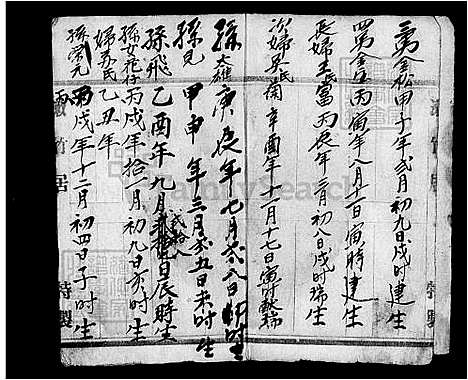 男金松甲子年弍月初九日戌时建生
四男金 丙寅年八月十一日寅時建生
長婦王氏富丙辰年二月初八日戌时瑞生
次婦吴氏 辛酉年十一月十七日寅时 瑞
孫大雄庚辰年七月弍八日 时生
孫兒 甲申年三月弍五日未时生
孫飛乙酉年九月 日辰時生
孫女 仔丙戌年拾一月初九日亥时生
婦苏氏乙丑年
孫榮元丙戌年十二月初四日子时生
竹居
特製
竹居
特製
FamilySearch